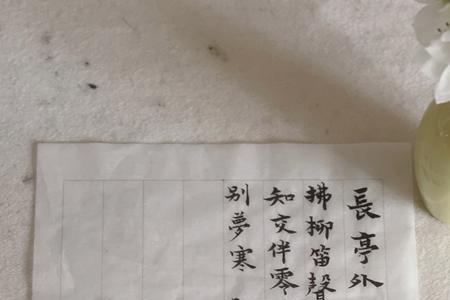 長亭外
拂柳笛聲
知交伴零
别夢寒